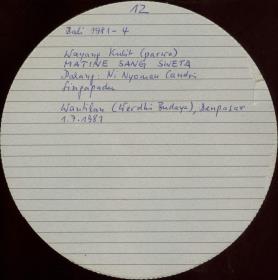 12
Bali 1981-4
Wayang Kulit (parwa)
MATINE SANG SWETA
Dalang: Ni Nyoman Candri
Singapadu
Wantilan (Werdhi Budaya), Denpasar
1.7.1981